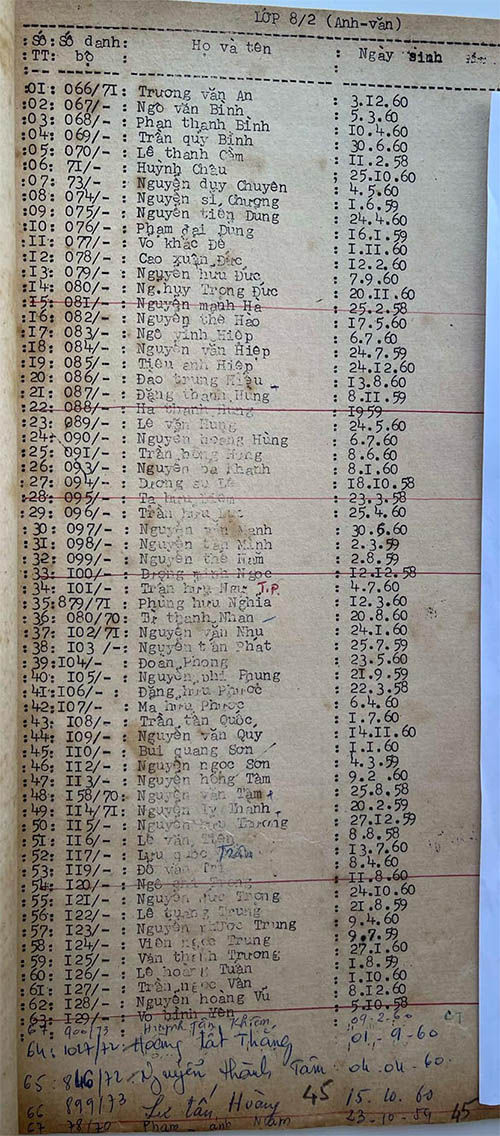 LỚP 8/2 (Anh-văn)
:Số: Số danh: Họ và tên : Ngày sinh
:TT: bộ : :
:01: 066/71: Trương văn An : 3.12.60
:02: 067/-: Ngô văn Bình : 5.3.60
:03: 068/-: Phan thanh Bình : 10.4.60
:04: 069/-: Trần quý Bình : 30.6.60
:05: 070/-: Lê thanh Cầm : 11.2.58
:06: 71/-: Huỳnh Châu : 25.10.60
:07: 73/-: Nguyễn duy Chuyên : 4.5.60
:08: 074/-: Nguyễn sĩ Chương : 1.6.59
:09: 075/-: Nguyễn tiến Dung : 24.4.60
:10: 076/-: Phạm đại Dũng : 16.1.59
:11: 077/-: Võ khắc Đê : 1.11.60
:12: 078/-: Cao xuân Đức : 12.2.60
:13: 079/-: Nguyễn hữu Đức : 7.9.60
:14: 080/-: Ng.huy Trọng Đức : 20.11.60
:15: 081/-: Nguyễn mạnh Hà : 25.2.58
:16: 082/-: Nguyễn thế Hào : 17.5.60
:17: 083/-: Ngô vinh Hiệp : 6.7.60
:18: 084/-: Nguyễn văn Hiệp : 24.7.59
:19: 085/-: Tiêu anh Hiệp : 24.12.60
:20: 086/-: Đào trung Hiếu : 13.8.60
:21: 087/-: Đặng thanh Hùng : 8.11.59
:22: 088/-: Hà thanh Hùng : 1959
:23: 089/-: Lê văn Hùng : 24.5.60
:24: 090/-: Nguyễn hoàng Hùng : 6.7.60
:25: 091/-: Trần hồng : 8.6.60
:26: 093/-: Nguyễn bá Khanh : 8.1.60
:27: 094/-: Dương sĩ Lê : 18.10.58
:28: 095/-: Tạ hữu : 23.3.58
:29: 096/-: Trần hữu : 25.4.60
:30: 097/-: Nguyễn : 30.6.60
:31: 098/-: Nguyễn tấn Minh : 2.3.59
:32: 099/-: Nguyễn thế Nam : 2.8.59
:33: 100/-: Dương minh Ngọc : 12.12.58
:34: 101/-: Trần hữu T.P. : 4.7.60
:35: 879/71: Phùng hữu Nghĩa : 12.3.60
:36: 080/70: thanh Nhàn : 20.8.60
:37: 102/71: Nguyễn văn Nhu : 24.1.60
:38: 103 /-: Nguyễn tấn Phat : 25.7.59
:39: 104/-: Đoàn Phong : 23.5.60
:40: 105/-: Nguyễn phi Phụng : 21.9.59
:41: 106/- : Đặng hữu Phước : 22.3.58
:42: 107/-: Mạ hữu Phước : 6.4.60
:43: 108/-: Trần tấn Quốc : 1.7.60
:44: 109/-: Nguyễn văn Quý : 14.11.60
:45: 110/-: Bùi quang Sơn : 1.1.60
:46: 112/-: Nguyễn ngọc Sơn : 4.3.59
:47: 113/-: Nguyễn hồng Tâm : 9.2 .60
:48: 158/70: Nguyễn văn Tám : 25.8.58
:49: 114/71: Nguyễn Thành : 20.2.59
:50: 115/-: Nguyễn : 27.12.59
:51: 116/-: Lê văn : 8.8.58
:52: 117/-: Lưu quốc : 13.7.60
:53: 119/-: Đỗ văn Trí : 8.4.60
:54: 120/-: Ngô : 11.8.60
:55: 121/-: Nguyễn đức Trọng : 24.10.60
:56: 122/-: Lê quang Trung : 21.8.59
:57: 123/-: Nguyễn Trung : 9.4.60
:58: 124/-: Viên ngọc Trung : 9.7.59
:59: 125/-: Văn thanh Trương : 27.1.60
:60: 126/-: Lê hoàng Tuấn : 1.8.59
:61: 127/-: Trần ngọc Vân : 1.10.60
:62: 128/-: Nguyễn hoàng Vũ : 8.12.60
:63: 129/-: Võ bỉnh Yên : 5.10.58
67: 900/73 Huỳnh Tấn Khiêm 09-2-60
64: 1027/72: Hoàng Tất Thắng 01-9-60
65: 846/72: Nguyễn Thành Tâm 04.04-60.
66 899/73 Lư tấn Hoàng 45 15.10.60
67 78/70 Phạm anh 23-10-59 45